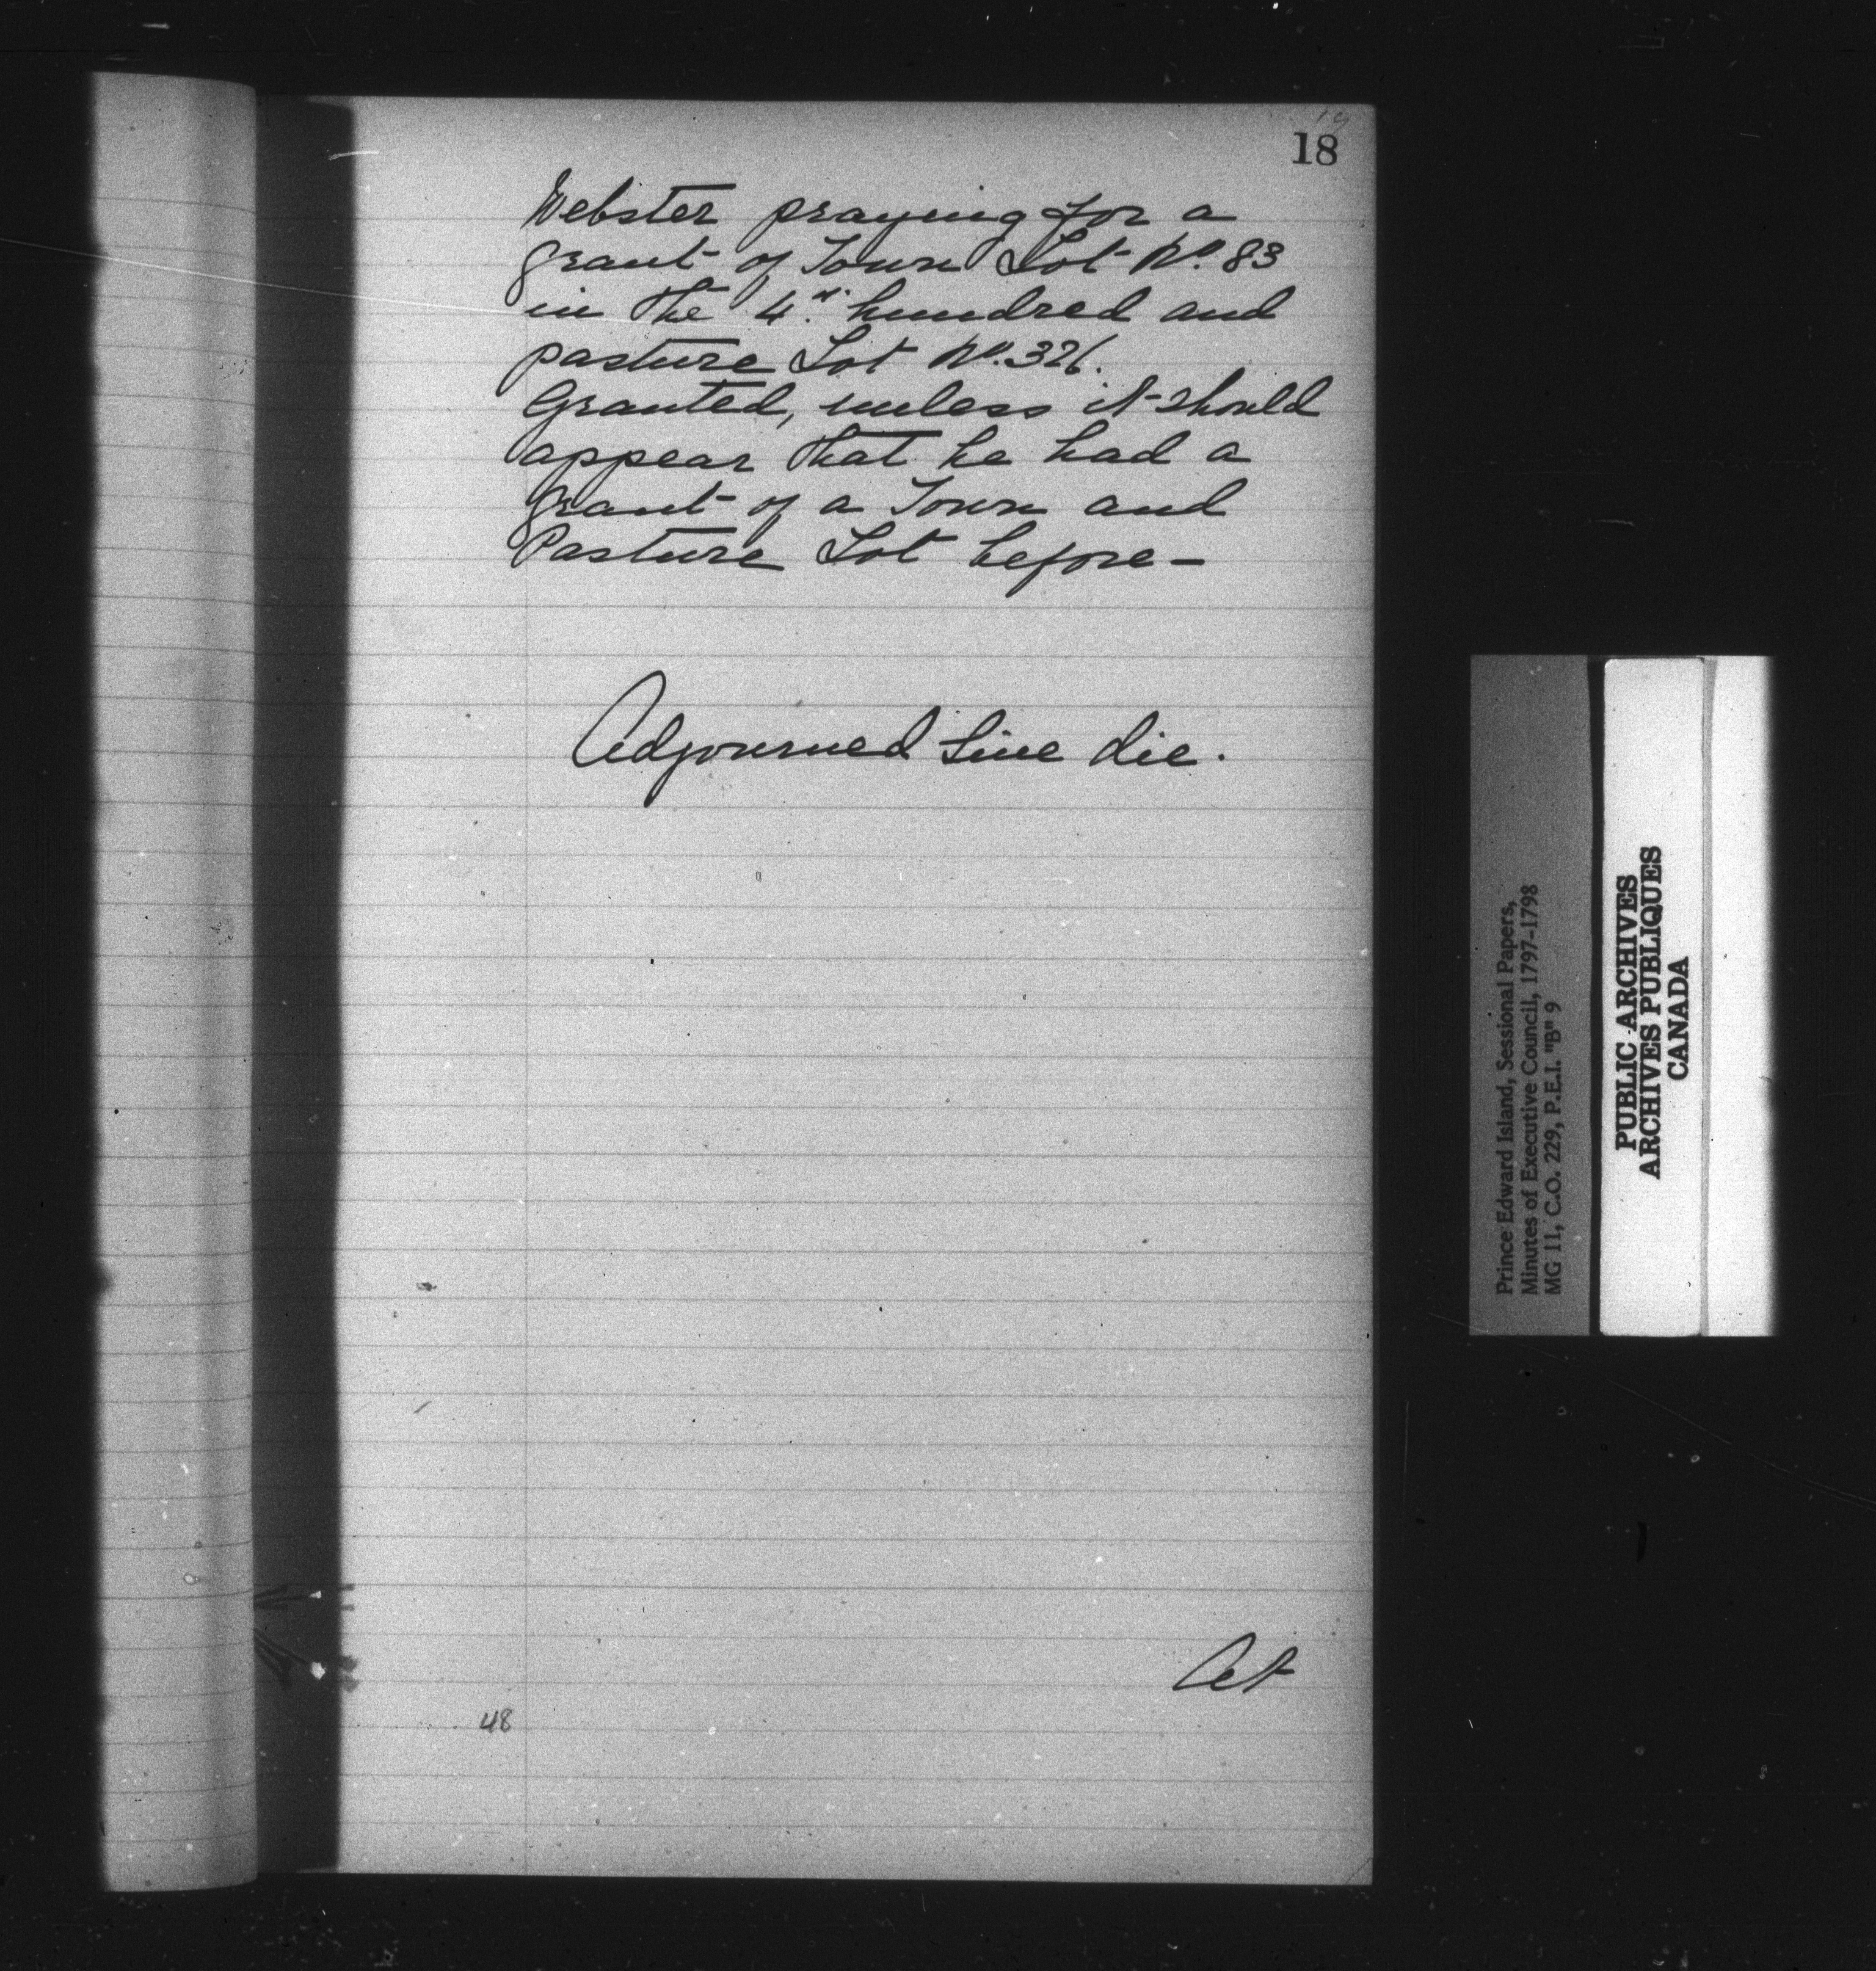 18
Webster praying for a
grant of Town Lot No. 83
in the 4th hundred and
pasture Lot No. 326.
Granted, unless it should
appear that he had a
grant of a Town and
Pasture Lot before —
Adjourned Sine die.
At
48
Prince Edward Island, Sessional Papers,
Minutes of Executive Council, 1797-1798
MG 11, C.O. 229, P.E.I. "B" 9
PUBLIC ARCHIVES
ARCHIVES PUBLIQUES
CANADA